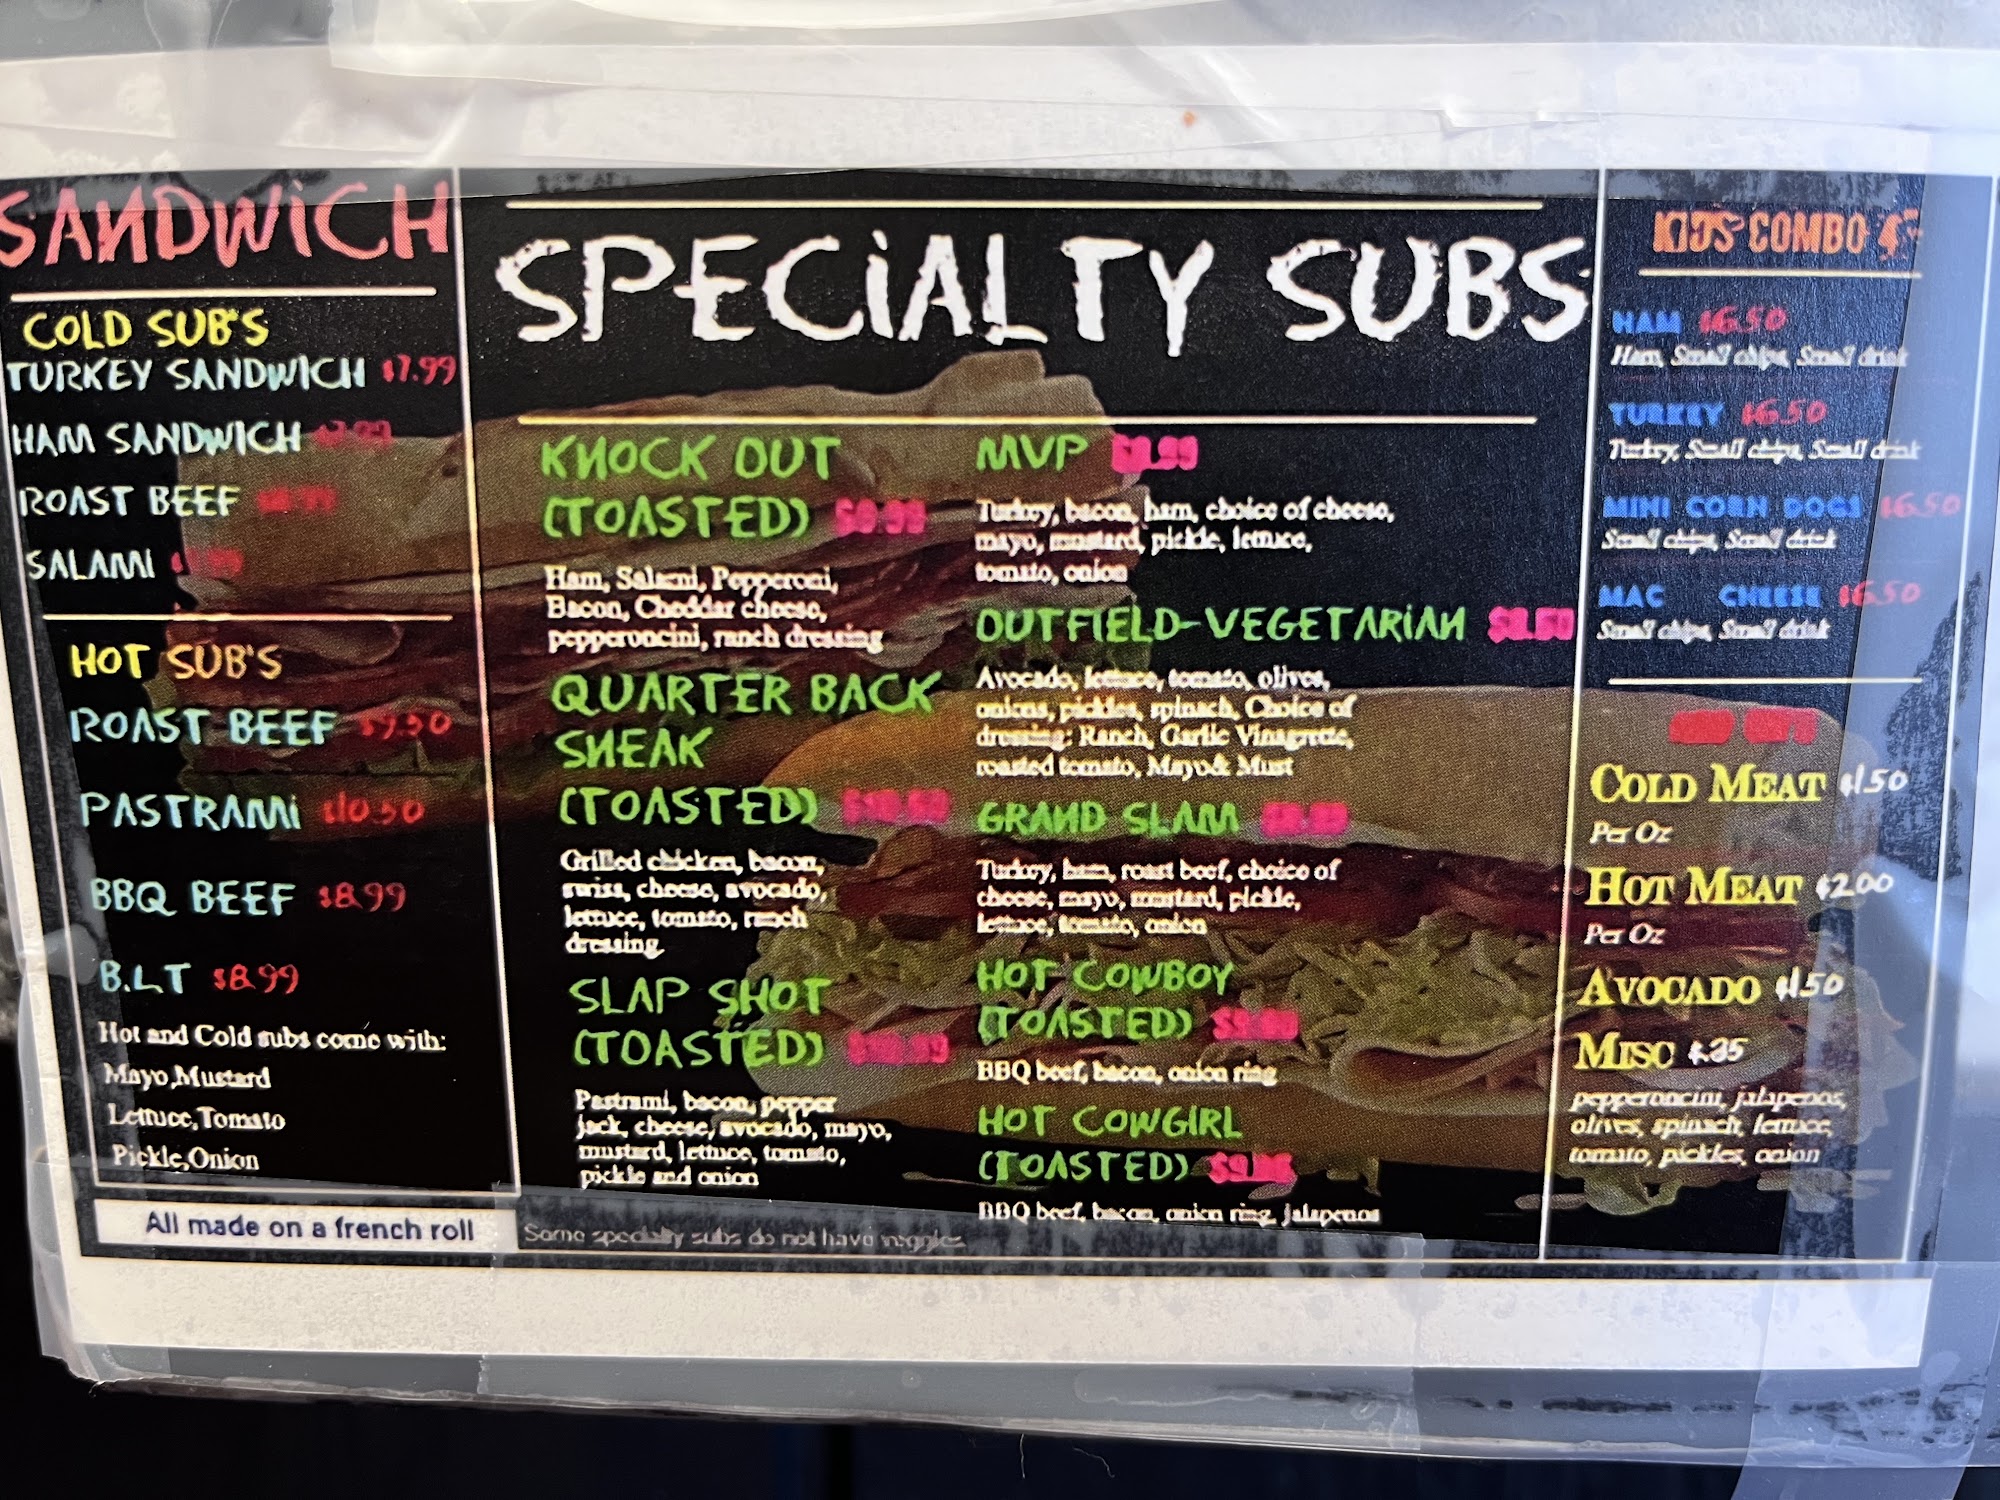 SANDWICH
COLD SUB'S
TURKEY SANDWICH $7.99
HAM SANDWICH
ROAST BEEF
SALAMI
HOT SUB'S
ROAST BEEF $9.50
PASTRAMI $10.50
BBQ BEEF $8.99
B.L.T $8.99
Hot and Cold subs come with:
Mayo,Mustard
Lettuce,Tomato
Pickle,Onion
All made on a french roll
SPECIALTY SUBS
KNOCK OUT
(TOASTED)
Ham, Salami, Pepperoni,
Bacon, Cheddar cheese,
pepperoncini, ranch dressing
QUARTER BACK
SNEAK
(TOASTED)
Grilled chicken, bacon,
swiss, cheese, avocado,
lettuce, tomato, ranch
dressing.
SLAP SHOT
(TOASTED)
Pastrami, bacon, pepper
jack, cheese, avocado, mayo,
mustard, lettuce, tomato,
pickle and onion
Some specialty subs do not have veggies
MVP
Turkey, bacon, ham, choice of cheese,
mayo, mustard, pickle, lettuce,
tomato, onion
OUTFIELD-VEGETARIAN
Avocado, lettuce, tomato, olives,
onions, pickles, spinach, Choice of
dressing: Ranch, Garlic Vinagrette,
roasted tomato, Mayo& Must
GRAND SLAM
Turkey, ham, roast beef, choice of
cheese, mayo, mustard, pickle,
lettuce, tomato, onion
HOT COWBOY
(TOASTED)
BBQ beef, bacon, onion ring
HOT COWGIRL
(TOASTED)
BBQ beef, bacon, onion ring, jalapenos
KID'S COMBO
HAM $6.50
Ham, Small chips, Small drink
TURKEY $6.50
Turkey, Small chips, Small drink
MINI CORN DOGS $6.50
Small chips, Small drink
MAC CHEESE $6.50
Small chips, Small drink
COLD MEAT $1.50
Per Oz
HOT MEAT $2.00
Per Oz
AVOCADO $1.50
MISC
pepperoncini, jalapenos,
olives, spinach, lettuce,
tomato, pickles, onion